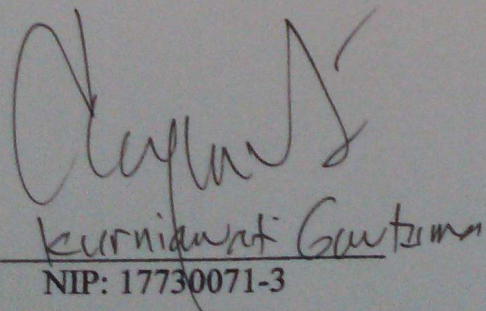 Kurniawati Gautama
NIP: 17730071-3